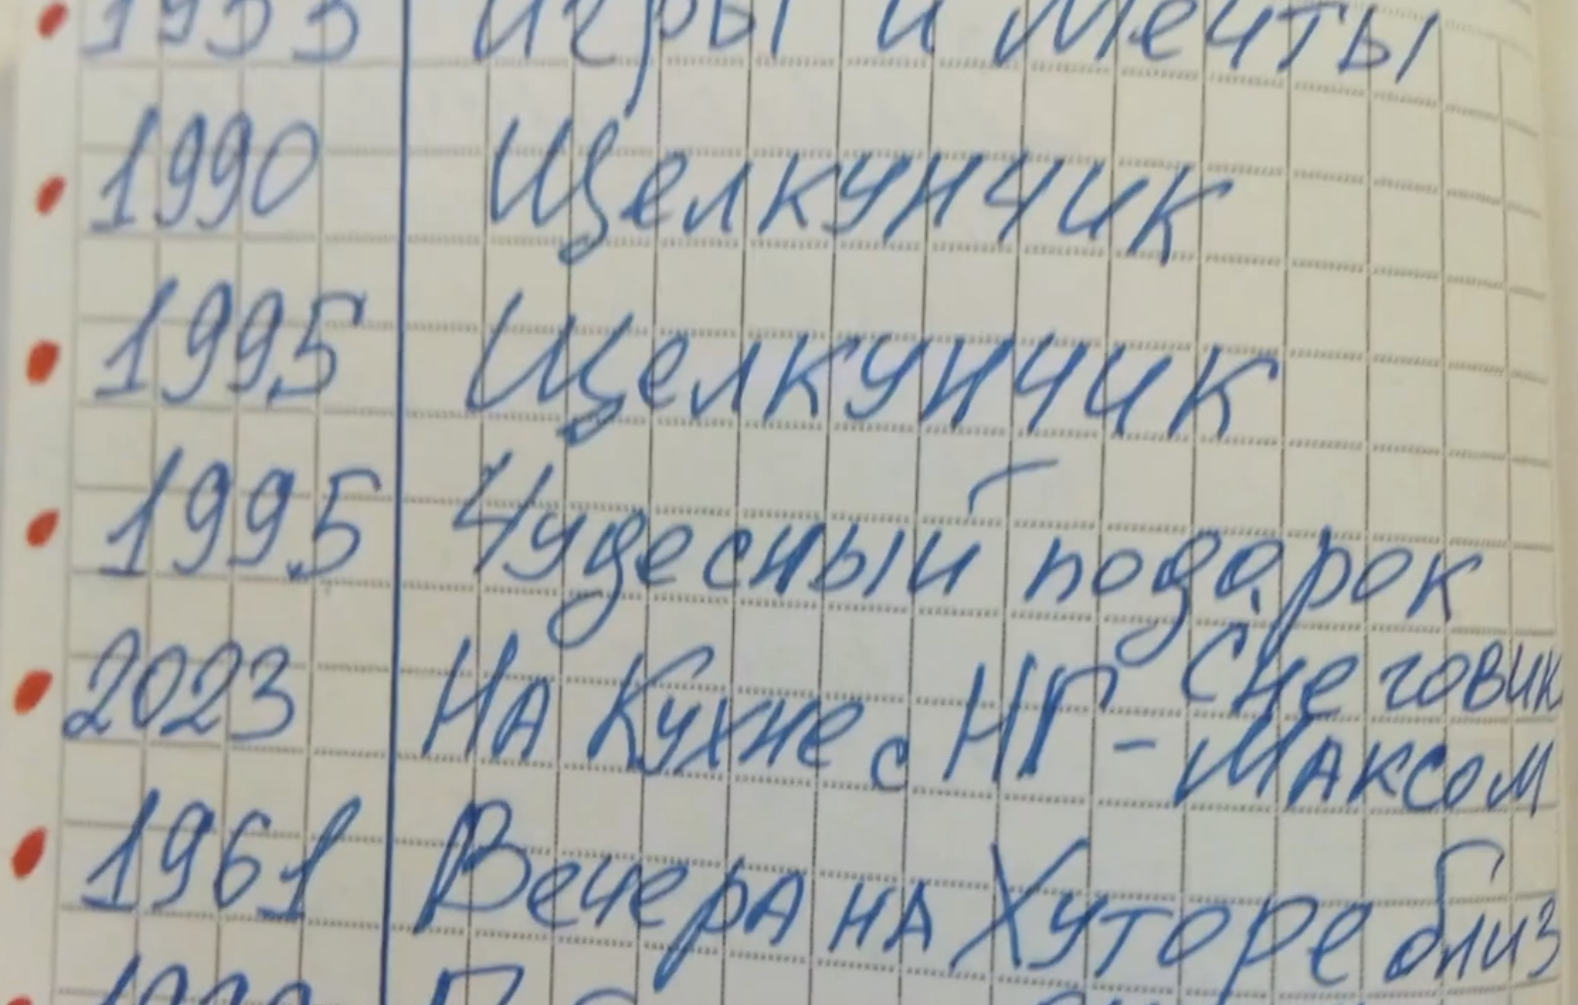 Игры и Мечты
1990 Щелкунчик
1995 Щелкунчик
1995 Чудесный подарок
Снеговик
2023 На Кухне с НГ - Максом
1961 Вечера на Хуторе близ